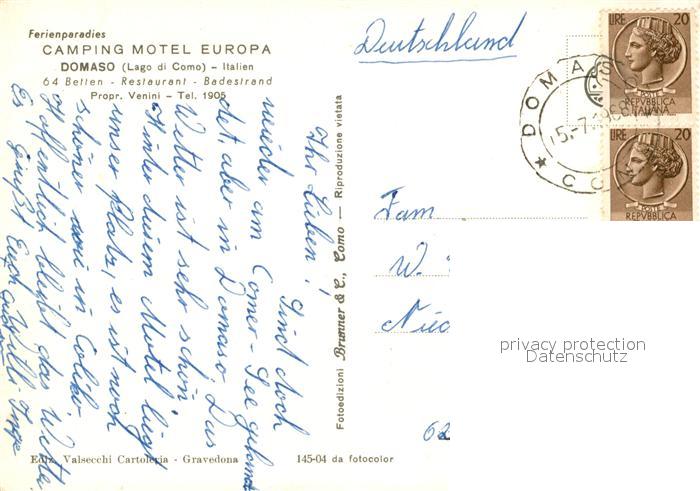 Ferienparadies
CAMPING MOTEL EUROPA
DOMASO (Lago di Como) – Italien
64 Betten - Restaurant - Badestrand
Propr. Venini – Tel. 1905
Ihr Lieben! Sind doch
wieder am Comer-See gelandet
det, aber in Domaso. Das
Wetter ist sehr schön.
Hinter diesem Motel liegt
unser Platz, es ist noch
schöner wie in Colico
Hoffentlich bleibt das Wetter
Es grüßt Euch Willi
Ediz. Valsecchi Cartoleria - Gravedona
145-04 da fotocolor
Fotoedizioni Brunner & C., Como — Riproduzione vietata
Deutschland
DOMASO
5.-7.1968
CO
LIRE 20
POSTE
REPVBBLICA
ITALIANA
LIRE 20
POSTE
REPVBBLICA
Fam
W.
62
privacy protection
Datenschutz